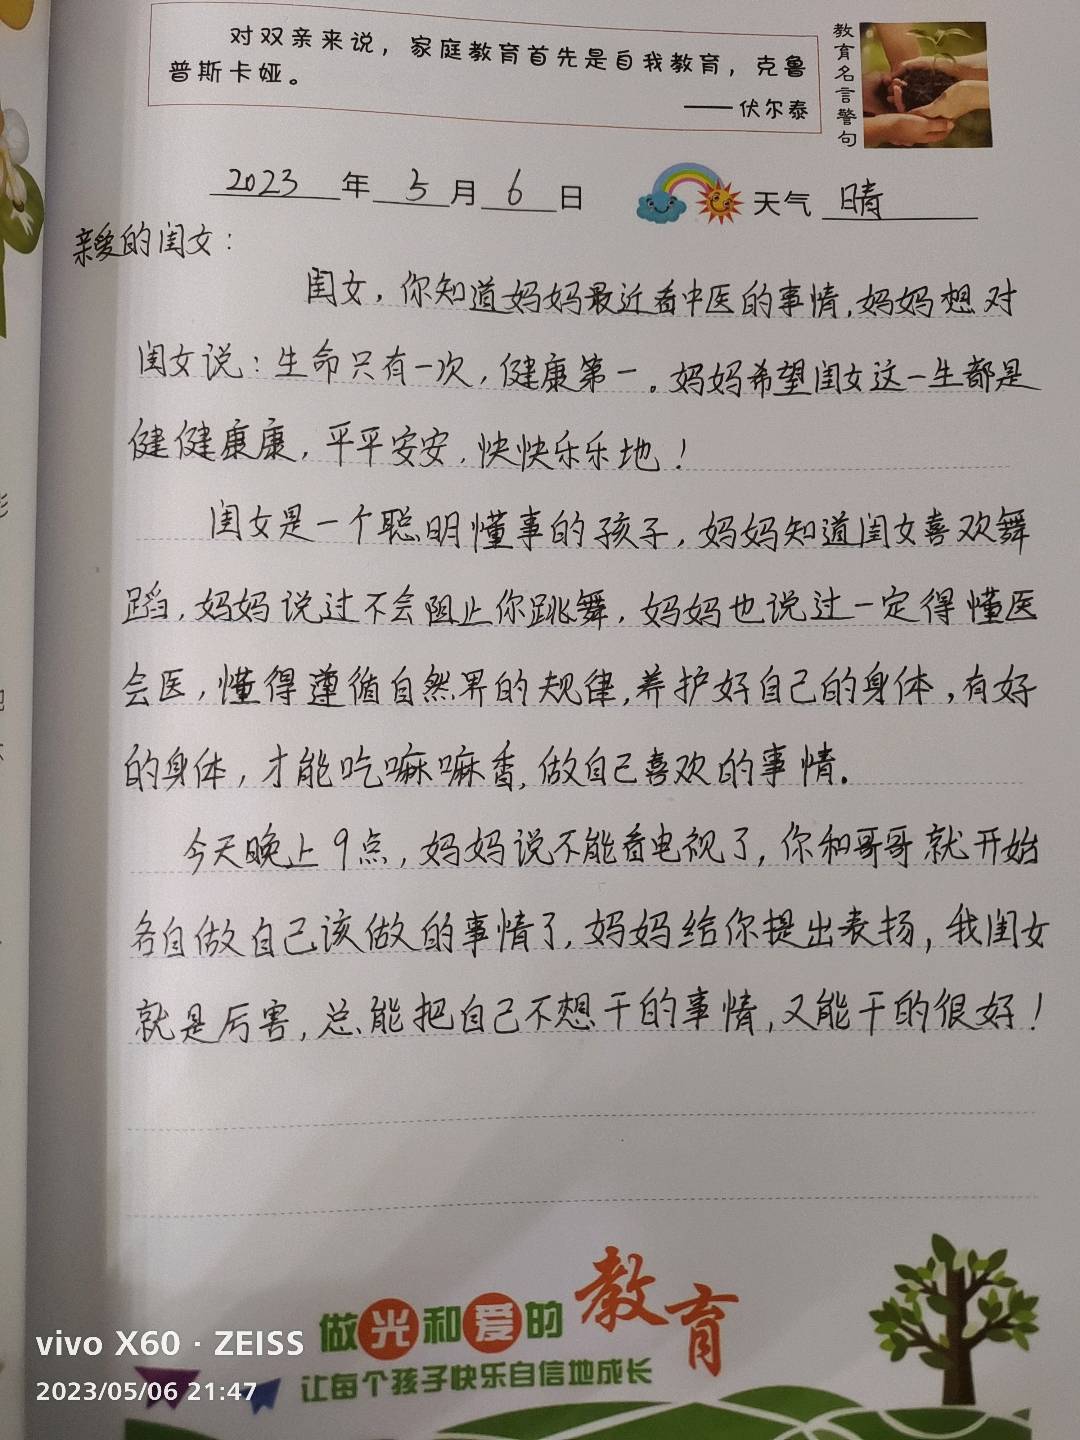 对双亲来说，家庭教育首先是自我教育，克鲁
普斯卡娅。
——伏尔泰
教育名言警句
2023年5月6日 天气 晴
亲爱的闺女：
闺女，你知道妈妈最近看中医的事情，妈妈想对
闺女说：生命只有一次，健康第一。妈妈希望闺女这一生都是
健健康康，平平安安，快快乐乐地！
闺女是一个聪明懂事的孩子，妈妈知道闺女喜欢舞
蹈，妈妈说过不会阻止你跳舞，妈妈也说过一定得懂医
会医，懂得遵循自然界的规律，养护好自己的身体，有好
的身体，才能吃嘛嘛香，做自己喜欢的事情。
今天晚上9点，妈妈说不能看电视了，你和哥哥就开始
各自做自己该做的事情了，妈妈给你提出表扬，我闺女
就是厉害，总能把自己不想干的事情，又能干的很好！
做光和爱的教育
让每个孩子快乐自信地成长
vivo X60 · ZEISS
2023/05/06 21:47